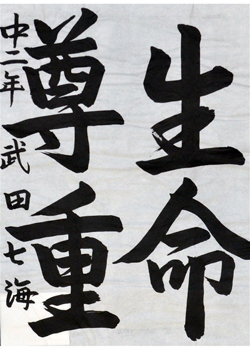 生命
尊重
中二年 武田七海